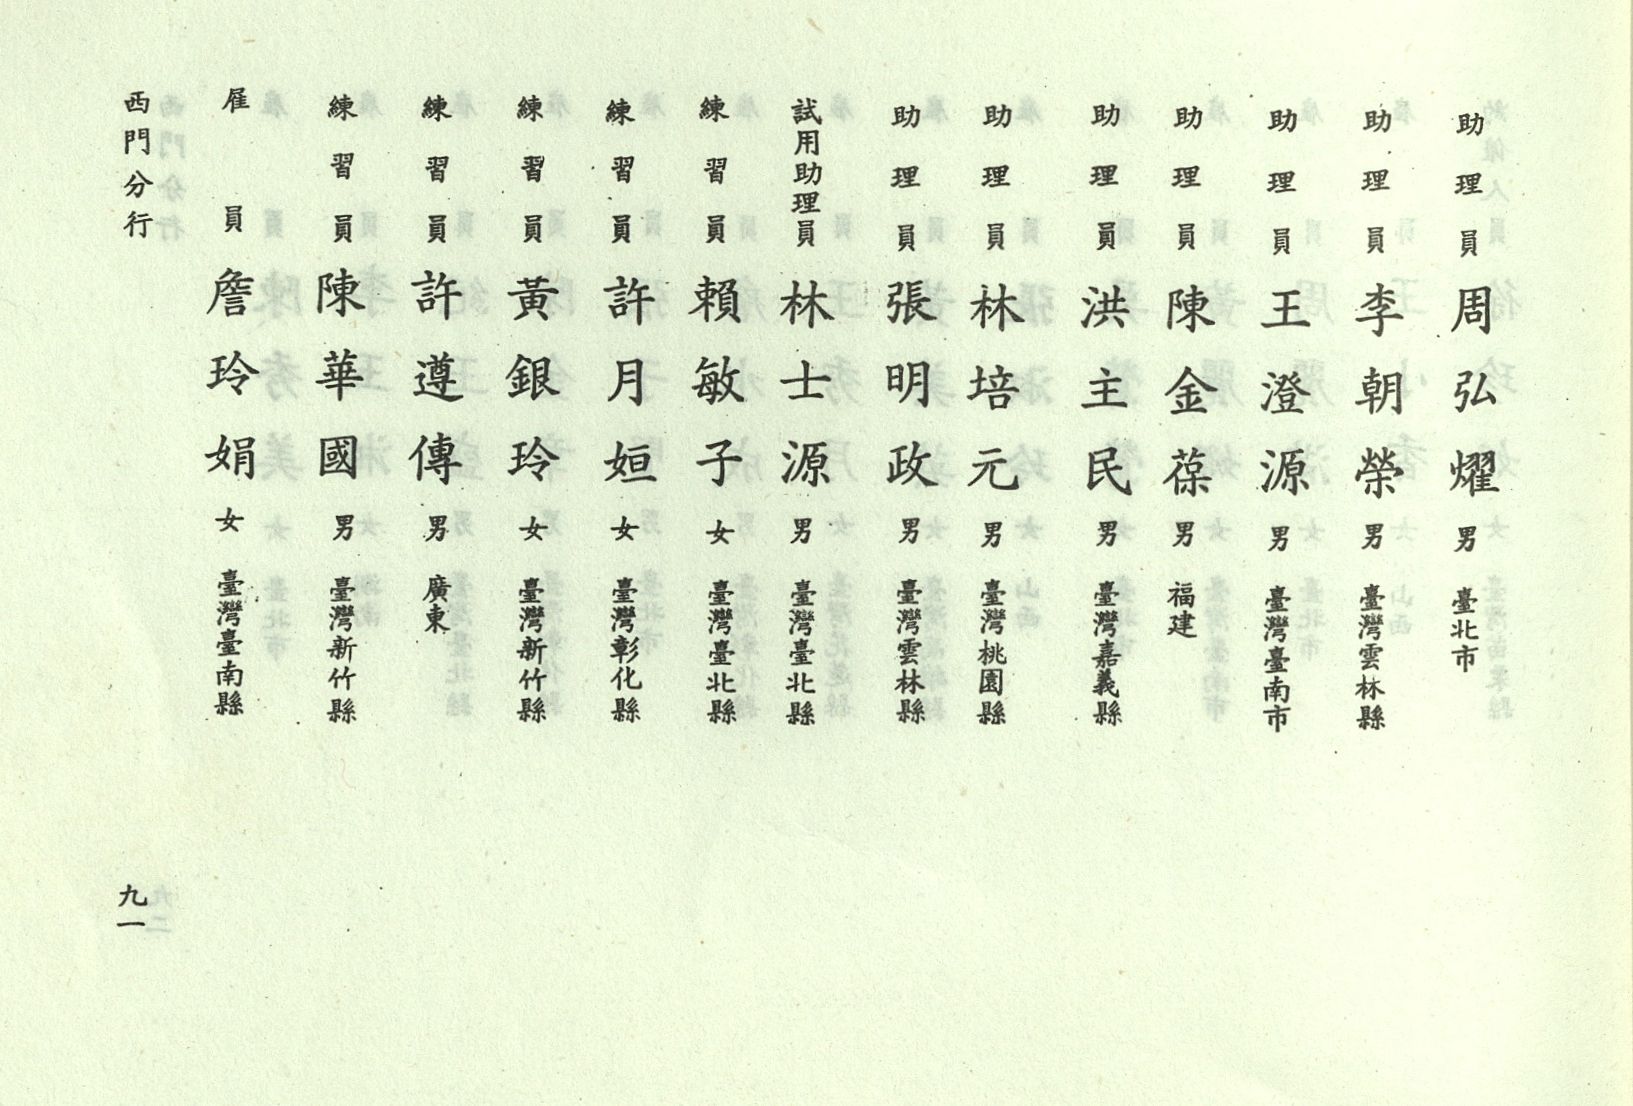 助理員 周弘燿 男 臺北市
助理員 李朝榮 男 臺灣雲林縣
助理員 王澄源 男 臺灣臺南市
助理員 陳金葆 男 福建
助理員 洪主民 男 臺灣嘉義縣
助理員 林培元 男 臺灣桃園縣
助理員 張明政 男 臺灣雲林縣
試用助理員 林士源 男 臺灣臺北縣
練習員 賴敏子 女 臺灣臺北縣
練習員 許月姮 女 臺灣彰化縣
練習員 黃銀玲 女 臺灣新竹縣
練習員 許遵傳 男 廣東
練習員 陳華國 男 臺灣新竹縣
雇員 詹玲娟 女 臺灣臺南縣
西門分行
九一